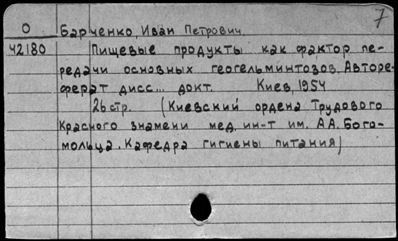 7
О Барченко, Иван Петрович
42180 Пищевые продукты как фактор пе-
редачи основных геогельминтозов. Авторе-
ферат дисс... докт. Киев, 1954
26 стр. (Киевский ордена Трудового
Красного знамени мед. ин-т им. А.А. Бого-
мольца. Кафедра гигиены питания)